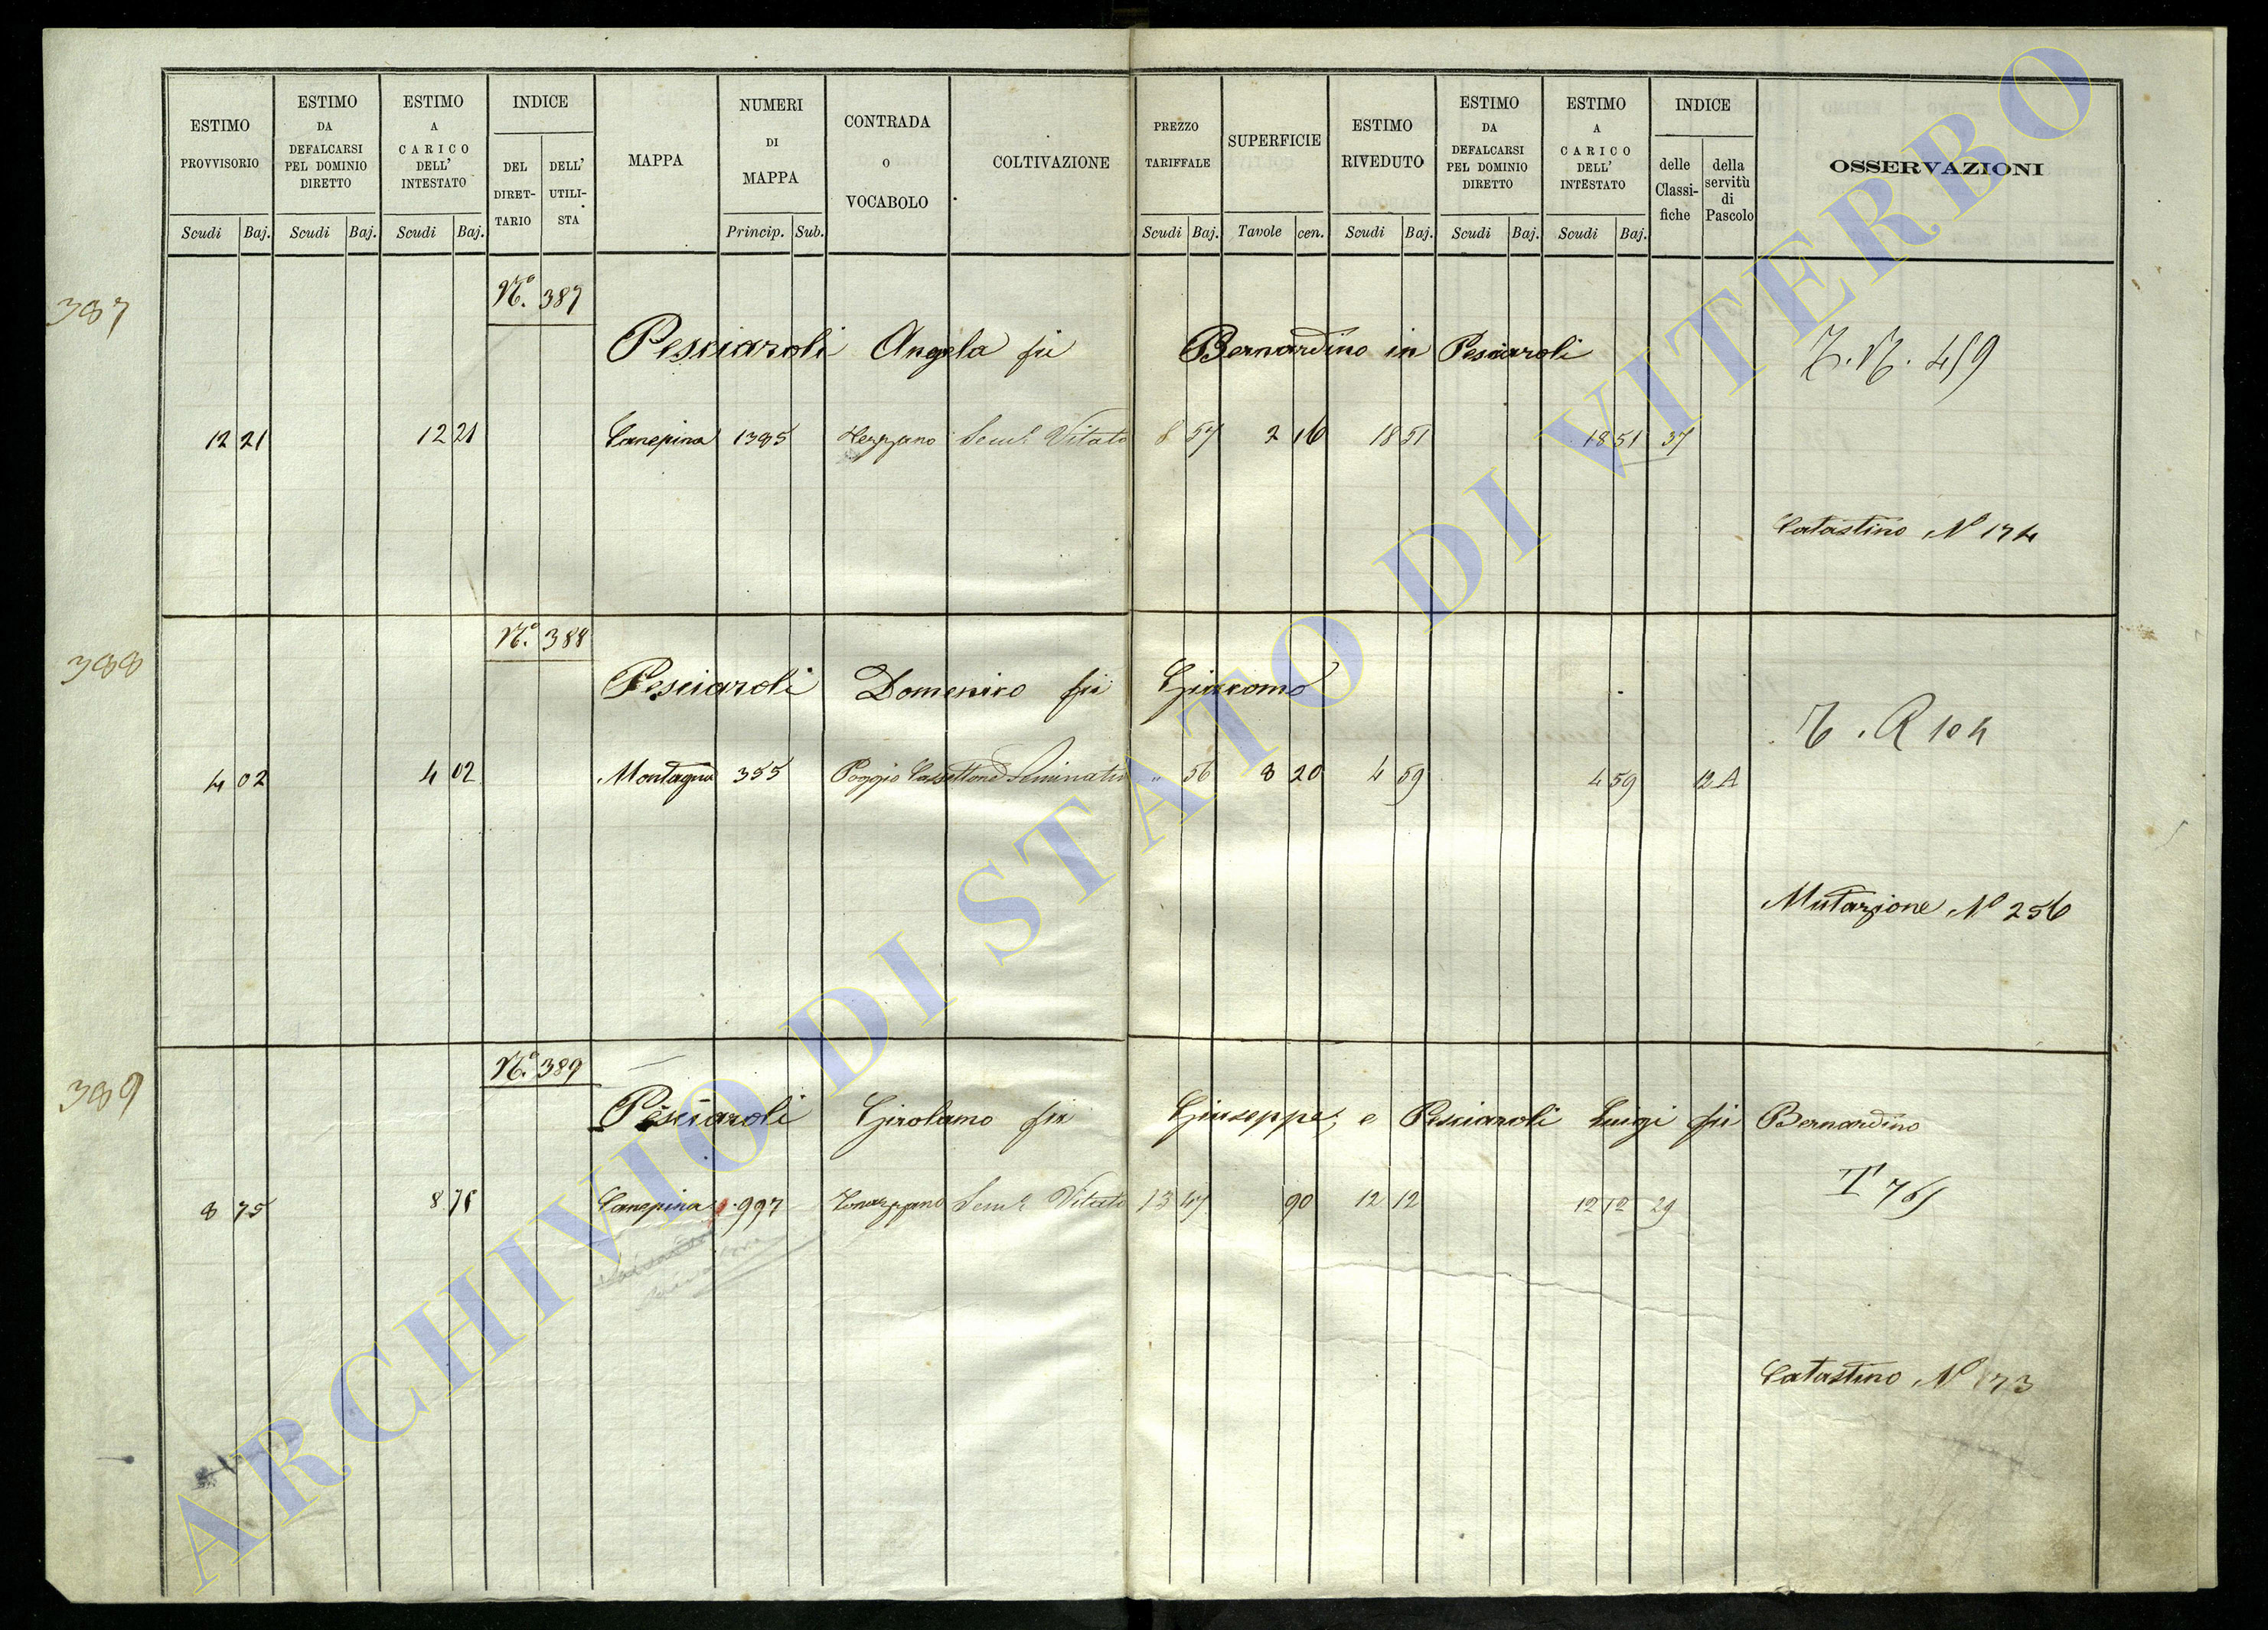 ESTIMO PROVVISORIO
Scudi Baj.
ESTIMO DA DEFALCARSI PEL DOMINIO DIRETTO
Scudi Baj.
ESTIMO A CARICO DELL' INTESTATO
Scudi Baj.
INDICE
DEL DIRET-TARIO
DELL' UTILI-STA
MAPPA
NUMERI DI MAPPA
Princip. Sub.
CONTRADA o VOCABOLO
COLTIVAZIONE
PREZZO TARIFFALE
Scudi Baj.
SUPERFICIE
Tavole cen.
ESTIMO RIVEDUTO
Scudi Baj.
ESTIMO DA DEFALCARSI PEL DOMINIO DIRETTO
Scudi Baj.
ESTIMO A CARICO DELL' INTESTATO
Scudi Baj.
INDICE
delle Classi-fiche
della servitù di Pascolo
OSSERVAZIONI
387
N.° 387
Pesciaroli Angela fu Bernardino in Pesciaroli
12 21 12 21 Canepina 1395 Sem.° Vitato 8 57 2 16 18 51 18 51 37
Catastino N° 174
388
N.° 388
Pesciaroli Domenico fu Giacomo
4 02 4 02 Montagna 355 Poggio Cassettone Seminativo " 56 8 20 4 59 4 59 12 A
Mutazione N° 256
389
N.° 389
Pesciaroli Girolamo fu Giuseppe, e Pesciaroli Luigi fu Bernardino
8 75 8 75 Canepina 997 Sem.° Vitato 13 47 90 12 12 12 12 29
Catastino N° 173
ARCHIVIO DI STATO DI VITERBO